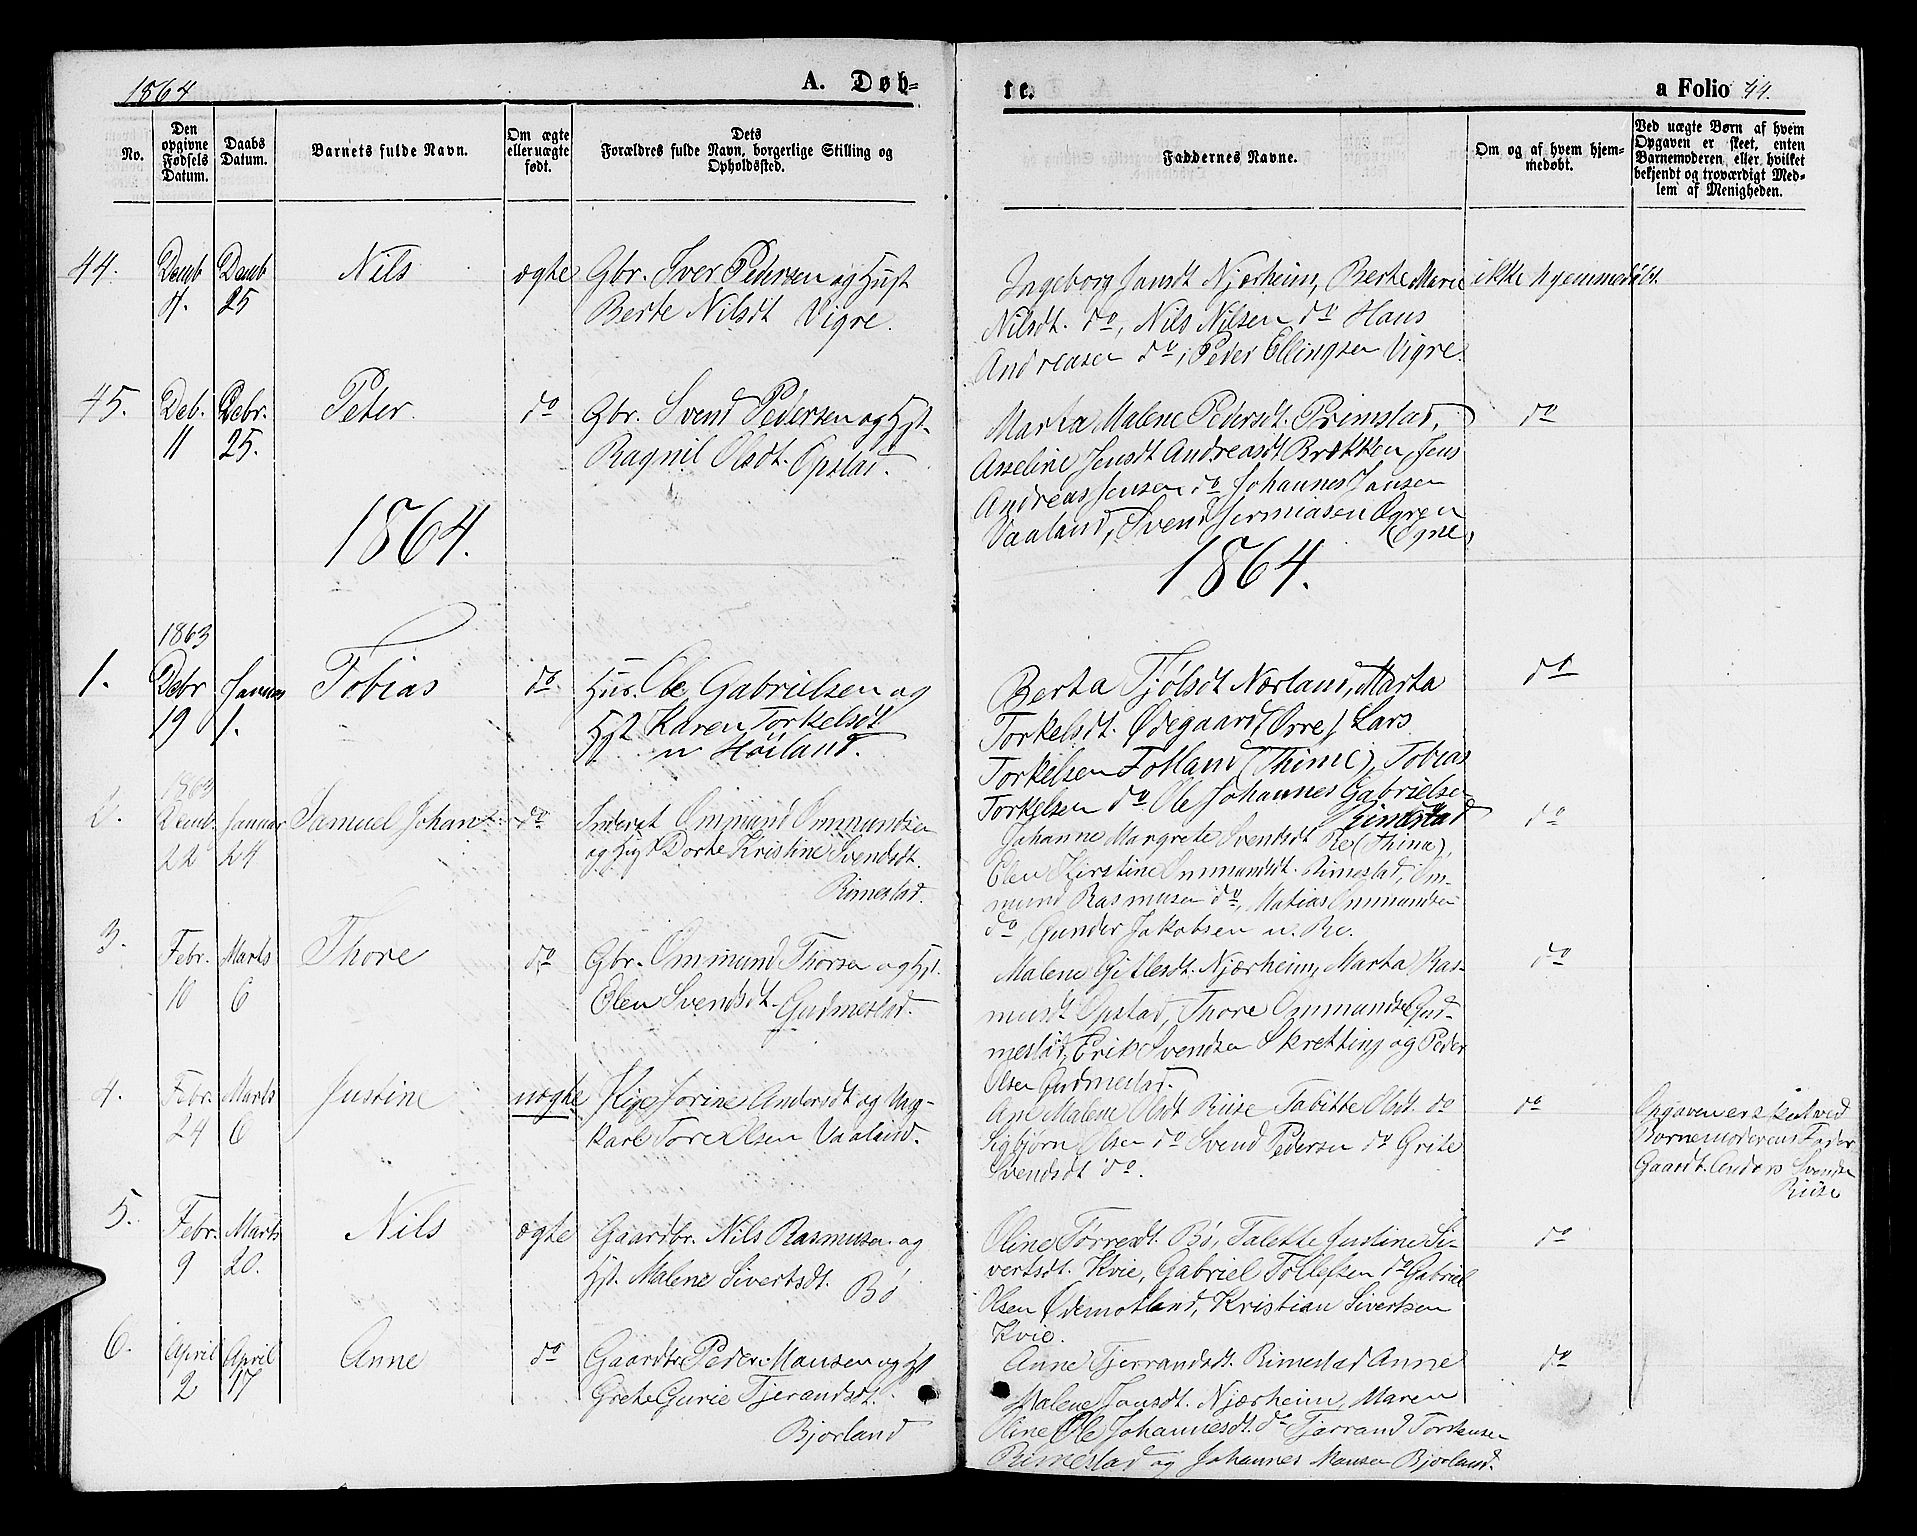 1864
A. Døb-
te.
a Folio 44.
No.
Den opgivne Fødsels Datum.
Daabs Datum.
Barnets fulde Navn.
Om ægte eller uægte født.
Dets Forældres fulde Navn, borgerlige Stilling og Opholdssted.
Faddernes Navne.
Om og af hvem hjemmedøbt.
Ved uægte Børn af hvem Opgaven er skeet, enten Barnemoderen eller hvilket bekjendt og troværdigt Medlem af Menigheden.
44.
Decmb 4.
Decmb 25
Nils
ægte
Gbr. Iver Pedersen og Hust
Berte Nilsdt Vigre.
Ingeborg Jansdt Njærheim, Berte Marie
Nilsdt. do, Nils Nilsen do Hans
Andreasen do, Peder Ellingsen Vigre.
ikke hjemmedøbt
45.
Deb. 11
Debr. 25.
Peter
do
Gbr. Svend Pedersen og Hst.
Ragnil Olsdt. Opstad.
Marta Malene Pedersdt. Primstad,
Asseline Jensdt Andreasdt Brækken, Jens
Andreas Jensen do Johannes Jansen
Vaaland, Svend Jermiasen Ogren
(Ogne)
do
1864.
1864.
1.
1863
Debr 19
Januar 1.
Tobias
do.
Hus. Ole Gabrielsen og
Hst Karen Torkelsdt
n Høiland.
Berta Tjølsdt Nærland, Marta
Torkelsdt. Ødegaard (Orre) Lars
Torkelsen Folland (Thime), Tobias
Torkelsen do Ole Johannes Gabrielsen
Rimestad
do
2.
1863
Decmb. 22
Januar 24
Samuel Johan
do
Inderst Ommund Ommundsen
og Hust Dorte Kristine Svendsdt.
Rimestad.
Johanne Margrete Svendsdt Re (Thime),
Elen Kirstine Ommundsdt. Rimestad, Om-
mund Rasmusen do, Matias Ommundsen
do, Gunder Jakobsen n. Re.
do
3.
Febr. 10
Marts 6
Thore
do
Gbr. Ommund Thorsen og Hst.
Elen Svendsdt. Gudmestad.
Malene Gitlesdt. Njærheim, Marta Ras-
musdt Opstad, Thore Ommundsen Gud-
mestad, Erik Svendsen Skretting og Peder
Olsen Gudmestad.
do
4.
Febr. 24
Marts 6
Justine
uægte
Pige Jorine Andersdt og Ung-
karl Tore Olsen Vaaland.
Ane Malene Olsdt Riise Tabitte Olsdt. do
Sigbjørn Olsen do Svend Pedersen do Grite
Svendsdt do.
do
Opgaven er skeet ved
Barnemoderens Fader
Gaardb. Anders Svendsen
Riise
5.
Febr. 9
Marts 20.
Nils
ægte
Gaardbr. Nils Rasmusen og
Hst. Malene Sivertsdt.
Bø
Oline Torresdt. Bø, Talette Justine Si-
vertsdt. Kvie, Gabriel Tollefsen do Gabriel
Olsen Ødemotland, Kristian Sivertsen
Kvie.
do
6.
April 2
April 17
Anne
do
Gaardbr Peder Mansen og Hst
Grete Gurie Tjerandsdt.
Bjorland
Anne Tjerrandsdt. Rimestad Anne
Malene Jansdt. Njærheim, Maren
Oline Ole Johannesdt. do Tjerrand Torstensen
Rimestad og Johannes Mansen Bjorland.
do